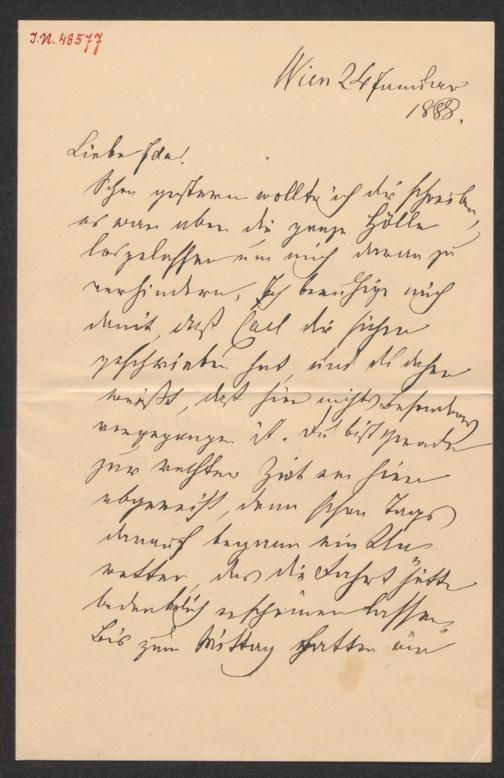 I.N. 48577
Wien 24 Januar
1888.
Liebe Ida!
Schon gestern wollte ich dir schreiben,
es war aber die ganze Hölle
losgelassen um mich daran zu
verhindern. Ich beruhige mich
damit, daß Carl dir sicher
geschrieben hat, und du daher
weißt, daß hier nichts Besonderes
vorgegangen ist. Du bist gerade
zur rechten Zeit von hier
abgereist, denn schon Tags
darauf begann ein Un
wetter, das die Fahrt hätte
bedenklich erscheinen lassen,
Bis zum Mittag hatten wir